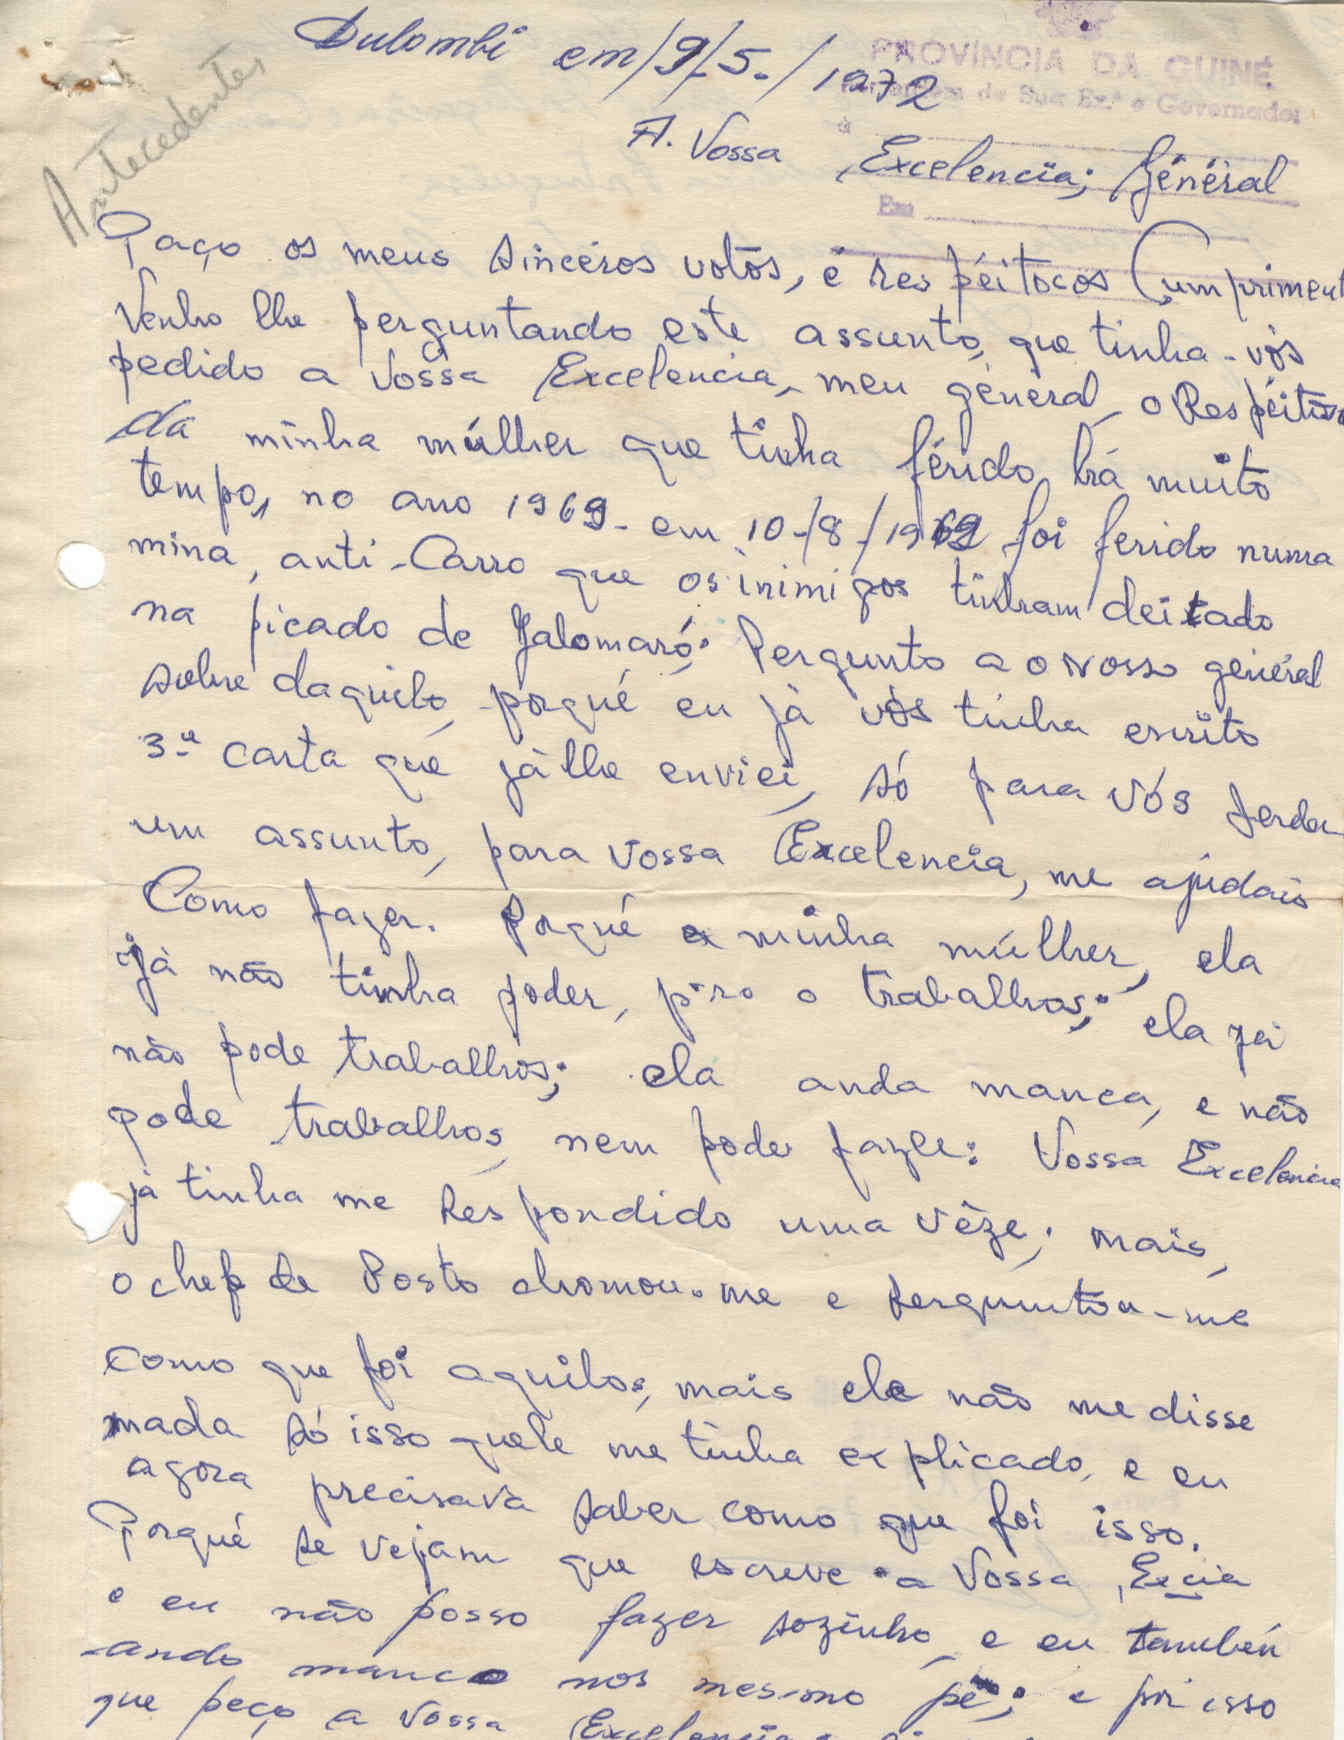 Dulombi em/9/5./1972
PROVÍNCIA DA GUINÉ
de Sua Ex.ª o Governador
à
Em
Antecedentes
A. Vossa Excelencia; Général
Faço os meus sincéros votos, e res péitocos Cumpriment
Venho lhe perguntando este assunto, que tinha-vós
pedido a Vossa Excelencia, meu géneral, o Respéitiva
da minha múlher que tinha férido, há muito
tempo, no ano 1969- em 10-/8-/1969 foi ferido numa
mina, anti-Carro que os inimigos tinham deitado
na picado de Galomaró. Pergunto a o vosso géneral
sobre daquilo, porqué eu já vós tinha escrito
3ª carta qué já lhe enviei, só para vós
um assunto, para Vossa Excelencia, me ajudais
Como fazer. Porqué a minha múlher, ela
já não tinha poder, p-ra o trabalhos; ela já
não pode trabalhos; ela anda manca, e não
pode trabalhos, nem pode fazer: Vossa Excelencia
já tinha me Respondido uma vêze; mais,
o chefe de Posto chamou-me e perguntou-me
como que foi aquilos, mais ele não me disse
nada só isso quele me tinha explicado, e eu
agora precisava saber como que foi isso.
Porqué se vejam que escreve a Vossa, Excia
e eu não posso fazer sozinho, e eu também
ando manco nos mesmo pé; e por isso
que peço a Vossa Excelencia